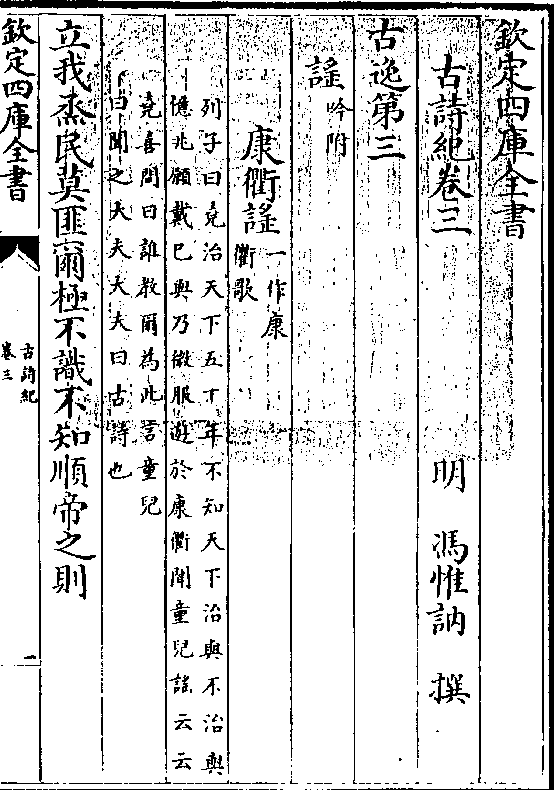 欽定四庫全書
古詩紀卷三
明　馮惟訥　撰
古逸第三
謡吟附
康衢謡一作康
衢歌
列子曰堯治天下五十年不知天下治與不治與
億兆願戴已與乃微服遊於康衢聞童兒謡云云
堯喜問曰誰教爾為此言童兒
曰聞之大夫大夫曰古詩也
立我烝民莫匪爾極不識不知順帝之則
欽定四庫全書
古詩紀
卷三
一